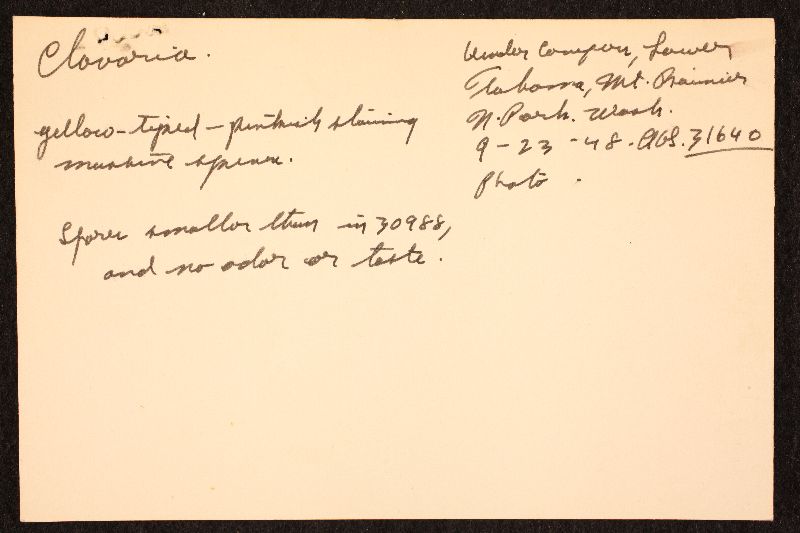 Clavaria.
yellow-tiped - pinkish staining
massive species.
Spores smaller than in 30988,
and no odor or taste.
Under conifers, Lower
Tahoma, Mt. Rainier
N. Park. Wash.
9-23-48. AHS. 31640
Photo.